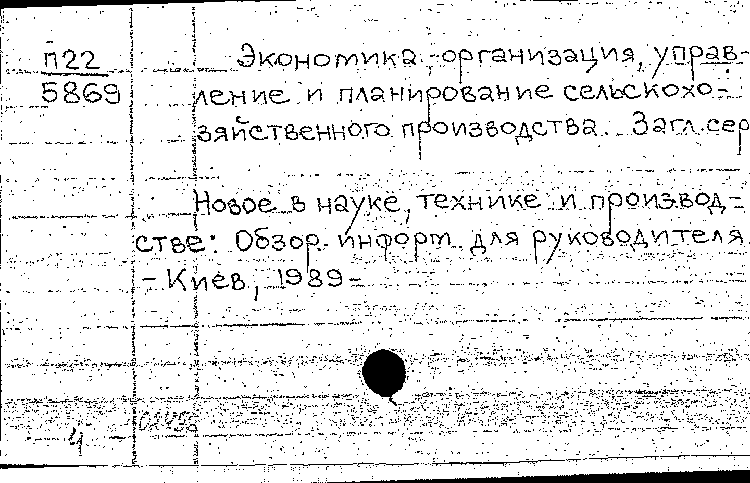 П22
5869
Экономика, организация, управ-
ление и планирование сельскохо-
зяйственного производства. Загл. сер
Новое в науке, технике и производ-
стве: Обзор. информ. для руководителя
- Киев, 1989-
4